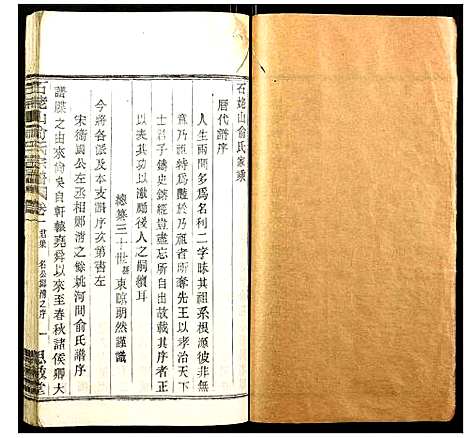 石姥山俞氏家乘
歷代譜序
人生兩間多爲名利二字昧其祖系根源彼非無
意乃祖特爲體先乃祖者時所奪先王以孝治天下
士君子鑄史鎔經豈盡忘所自出故載其序者正
以表而出之以激勵後人之嗣續耳
總纂三十世孫東暸朗然謹識
今將各派及本支譜序次第書左
宋衛國公左丞相鄭清之餘姚河間俞氏譜序
譜牒之由來尙矣自軒轅堯舜以來至春秋諸侯卿大
石姥山俞氏宗譜 卷
名公鄭清之序
一
思敬堂